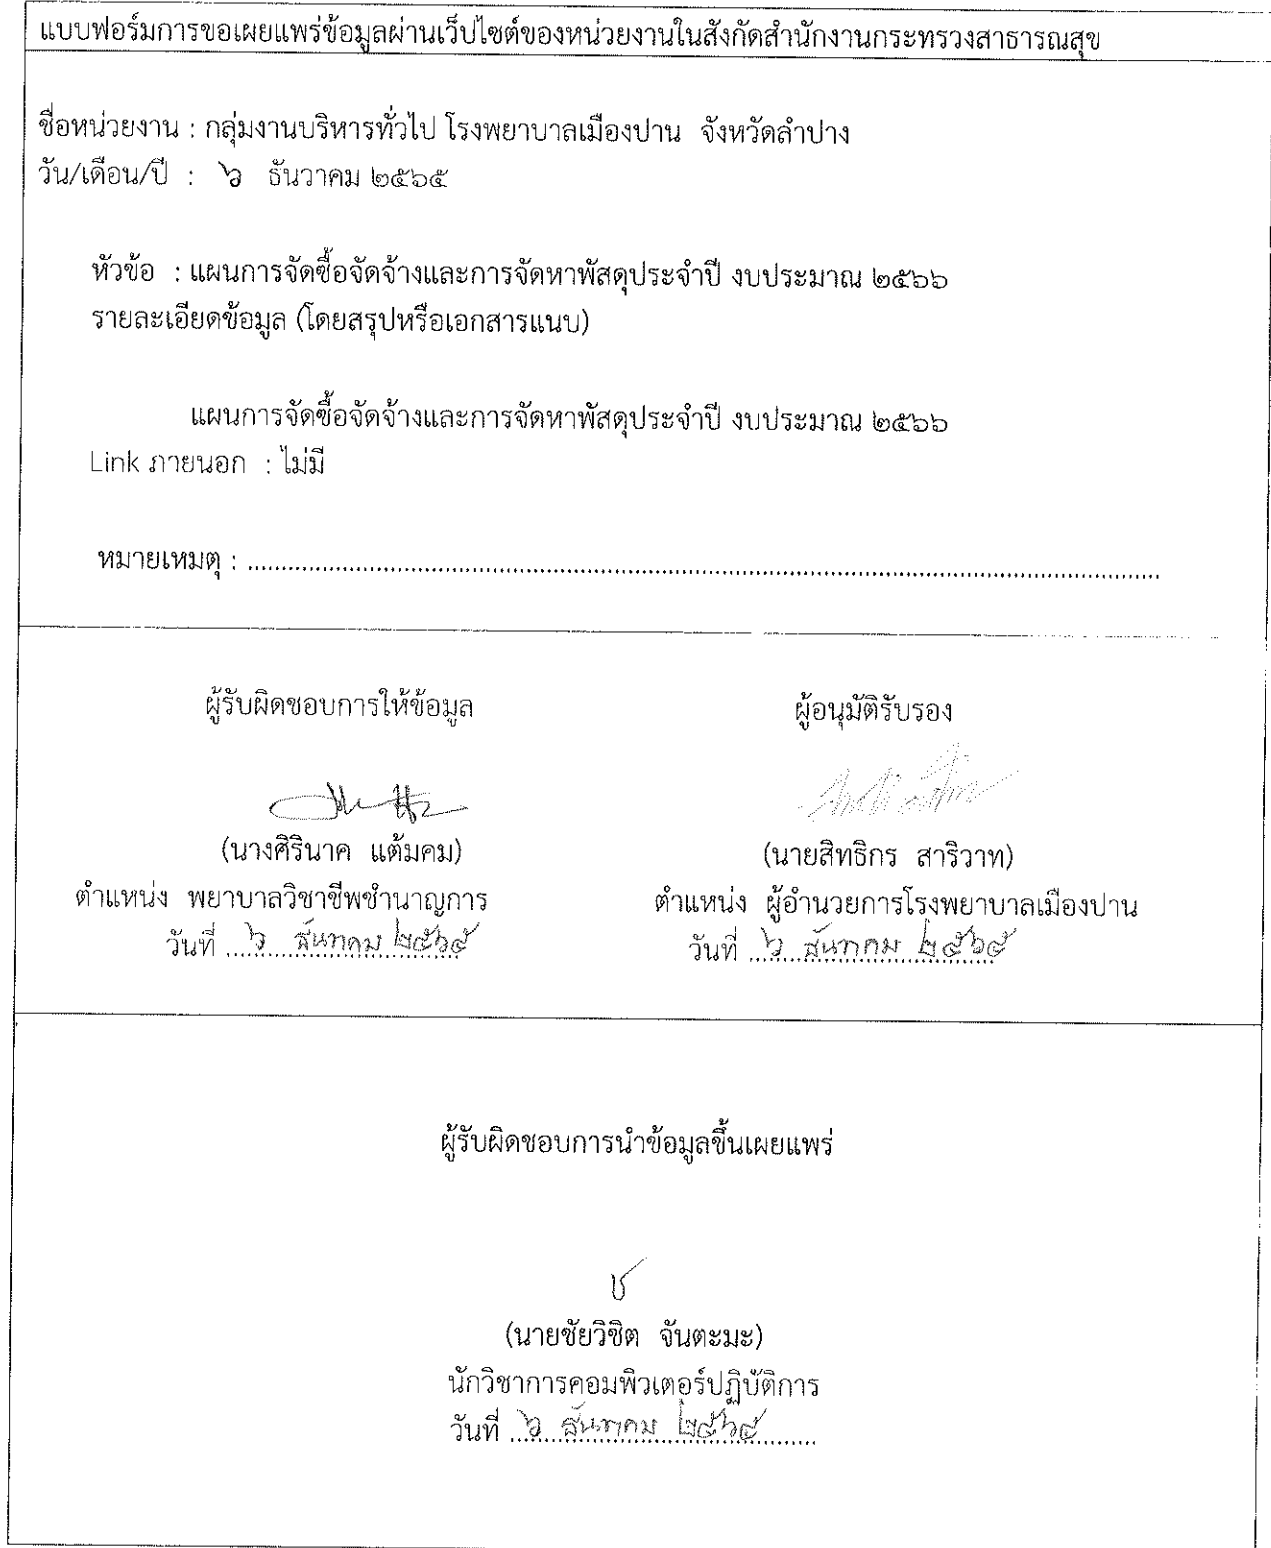 แบบฟอร์มการขอเผยแพร่ข้อมูลผ่านเว็บไซต์ของหน่วยงานในสังกัดสำนักงานกระทรวงสาธารณสุข
ชื่อหน่วยงาน : กลุ่มงานบริหารทั่วไป โรงพยาบาลเมืองปาน จังหวัดลำปาง
วัน/เดือน/ปี : ๖ ธันวาคม ๒๕๖๕
หัวข้อ : แผนการจัดซื้อจัดจ้างและการจัดหาพัสดุประจำปี งบประมาณ ๒๕๖๖
รายละเอียดข้อมูล (โดยสรุปหรือเอกสารแนบ)
แผนการจัดซื้อจัดจ้างและการจัดหาพัสดุประจำปี งบประมาณ ๒๕๖๖
Link ภายนอก : ไม่มี
หมายเหตุ : ........................................................................................................
ผู้รับผิดชอบการให้ข้อมูล
ผู้อนุมัติรับรอง
(นางศิรินาค แต้มคม)
(นายสิทธิกร สาริวาท)
ตำแหน่ง พยาบาลวิชาชีพชำนาญการ
ตำแหน่ง ผู้อำนวยการโรงพยาบาลเมืองปาน
วันที่ ๖ ธันวาคม ๒๕๖๕
วันที่ ๖ ธันวาคม ๒๕๖๕
ผู้รับผิดชอบการนำข้อมูลขึ้นเผยแพร่
ช
(นายชัยวิชิต จันตะมะ)
นักวิชาการคอมพิวเตอร์ปฏิบัติการ
วันที่ ๖ ธันวาคม ๒๕๖๕